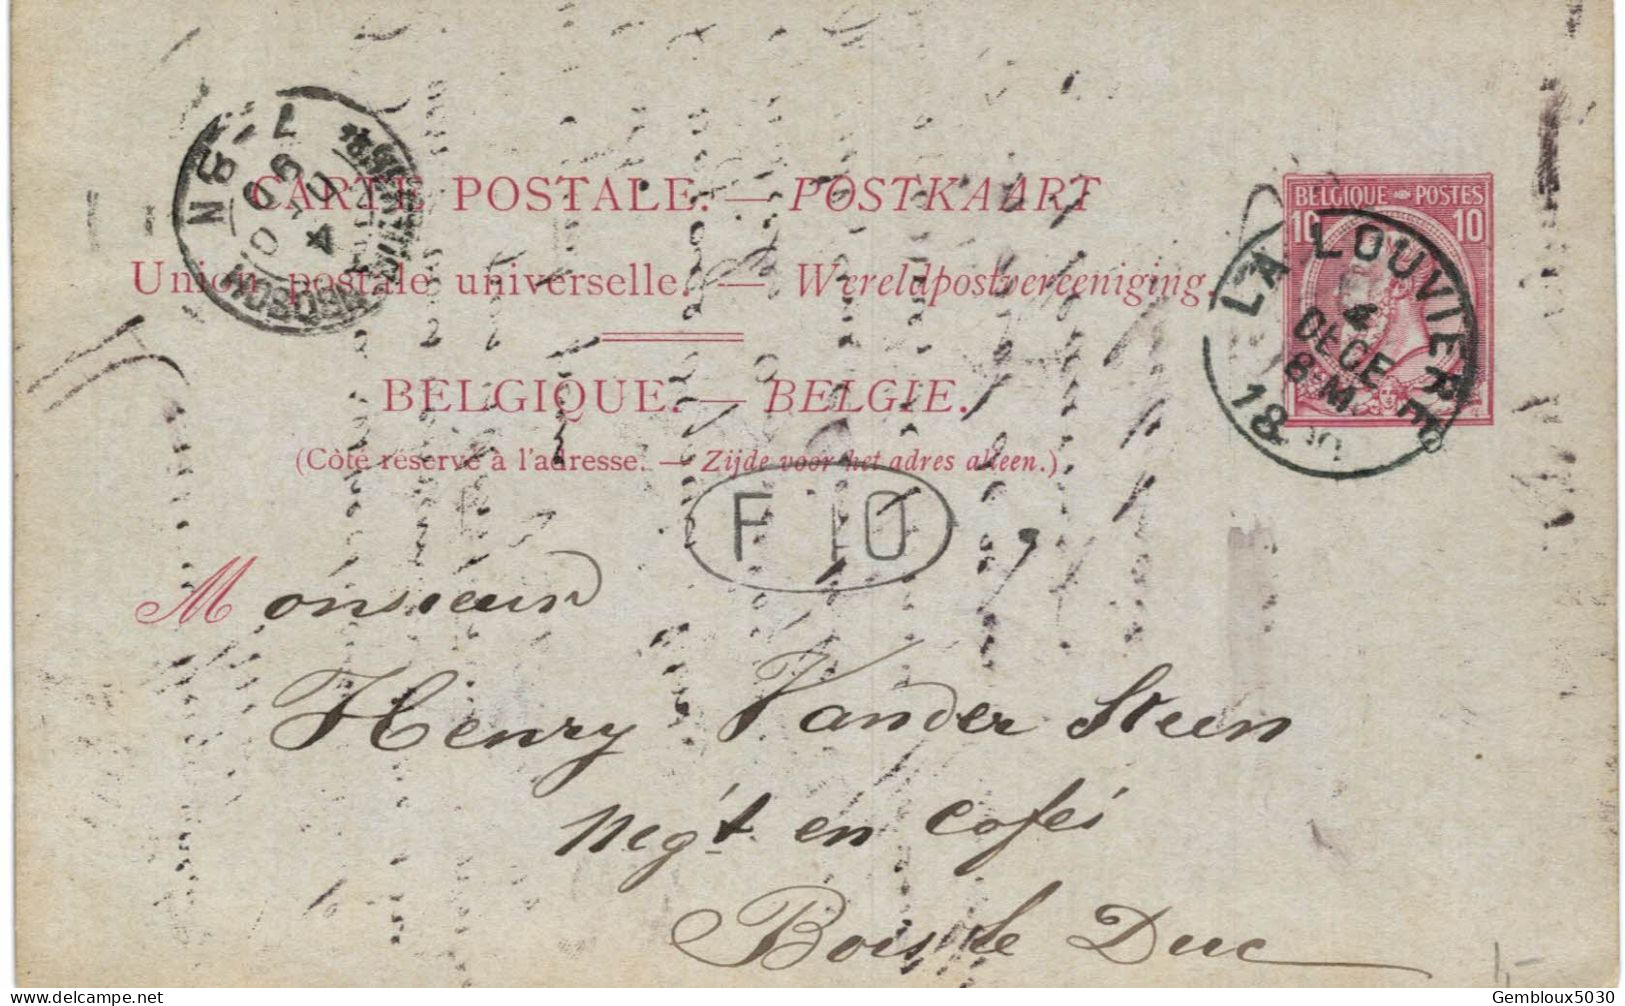 BELGIQUE POSTES
10 10
CARTE POSTALE. — POSTKAART
Union postale universelle. — Wereldpostvereeniging.
LA LOUVIERE
4
DECE
8-M
18
BELGIQUE. — BELGIE.
(Côté réservé à l'adresse. — Zijde voor het adres alleen.)
F 10
Monsieur
Henry Vander Steen
Neg't en cafés
Bois le Duc
Gembloux5030